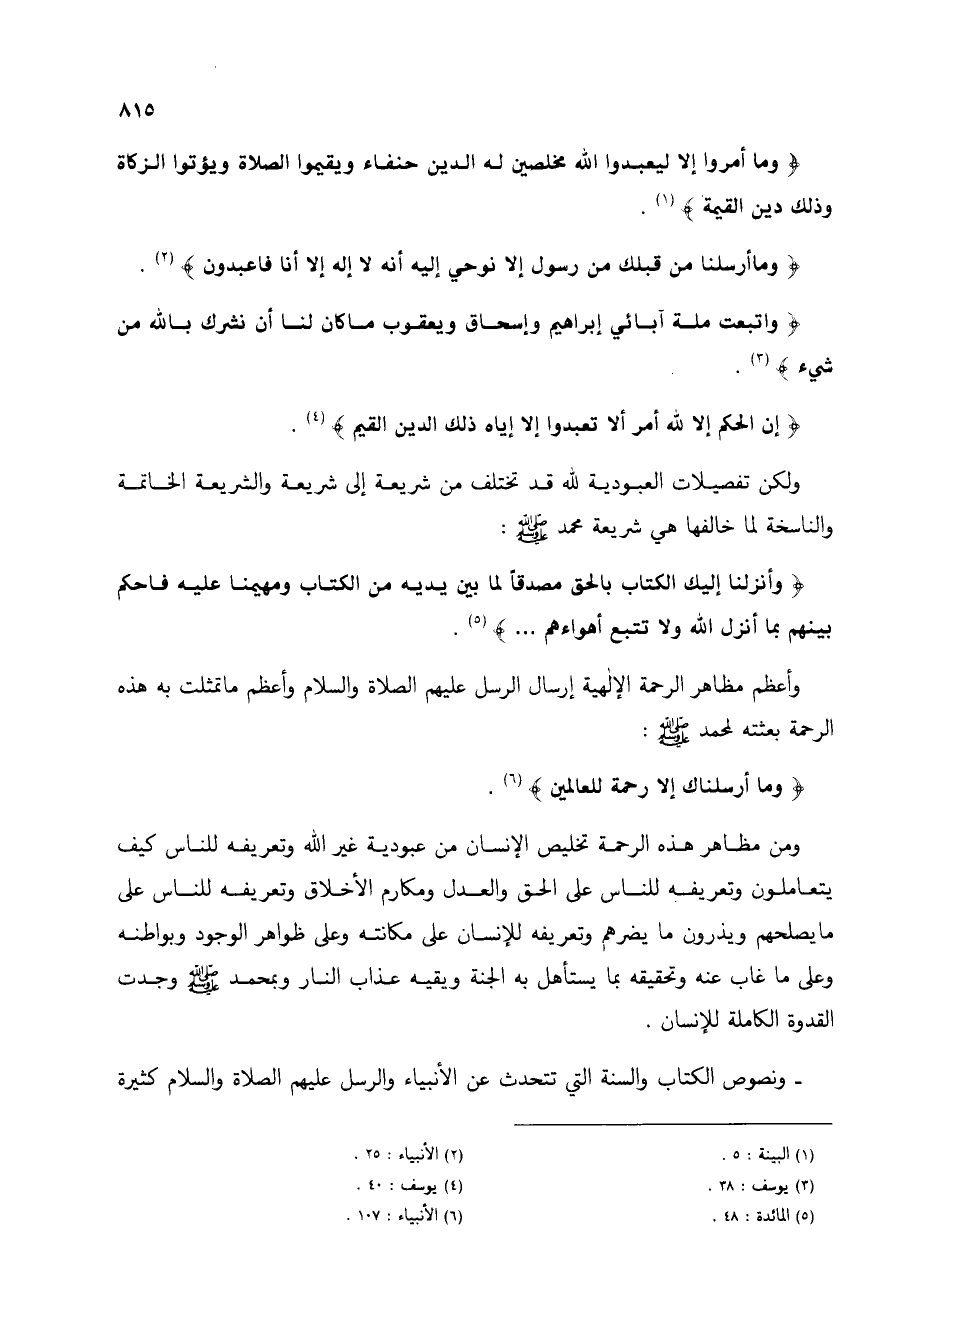 ٨١٥
﴿ وما أمروا إلا ليعبدوا الله مخلصين له الدين حنفاء ويقيموا الصلاة ويؤتوا الزكاة
وذلك دين القيمة ﴾ (١) .
﴿ وماأرسلنا من قبلك من رسول إلا نوحي إليه أنه لا إله إلا أنا فاعبدون ﴾ (٢) .
﴿ واتبعت ملة آبائي إبراهيم وإسحاق ويعقوب ماكان لنا أن نشرك بالله من
شيء ﴾ (٣) .
﴿ إن الحكم إلا لله أمر ألا تعبدوا إلا إياه ذلك الدين القيم ﴾ (٤) .
ولكن تفصيلات العبودية لله قد تختلف من شريعة إلى شريعة والشريعة الخاتمة
والناسخة لما خالفها هي شريعة محمد ﷺ :
﴿ وأنزلنا إليك الكتاب بالحق مصدقاً لما بين يديه من الكتاب ومهيمنا عليه فاحكم
بينهم بما أنزل الله ولا تتبع أهواءهم ... ﴾ (٥) .
وأعظم مظاهر الرحمة الإلٰهية إرسال الرسل عليهم الصلاة والسلام وأعظم ماتمثلت به هذه
الرحمة بعثته لمحمد ﷺ :
﴿ وما أرسلناك إلا رحمة للعالمين ﴾ (٦) .
ومن مظاهر هذه الرحمة تخليص الإنسان من عبودية غير الله وتعريفه للناس كيف
يتعاملون وتعريفه للناس على الحق والعدل ومكارم الأخلاق وتعريفه للناس على
مايصلحهم ويذرون ما يضرهم وتعريفه للإنسان على مكانته وعلى ظواهر الوجود وبواطنه
وعلى ما غاب عنه وتحقيقه بما يستأهل به الجنة ويقيه عذاب النار وبمحمد ﷺ وجدت
القدوة الكاملة للإنسان .
ـ ونصوص الكتاب والسنة التي تتحدث عن الأنبياء والرسل عليهم الصلاة والسلام كثيرة
(١) البينة : ٥ .
(٢) الأنبياء : ٢٥ .
(٣) يوسف : ٣٨ .
(٤) يوسف : ٤٠ .
(٥) المائدة : ٤٨ .
(٦) الأنبياء : ١٠٧ .